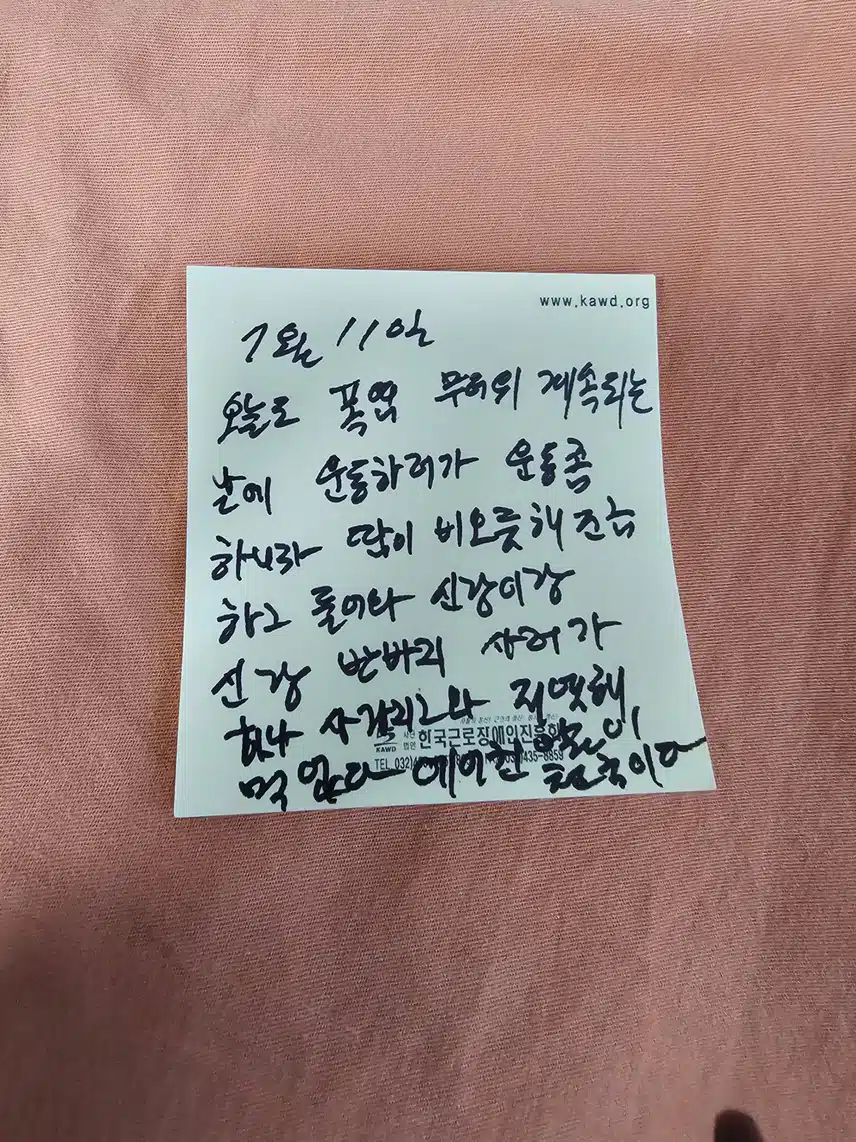 www.kawd.org
7월 11일
오늘도 폭염 무더위 계속되는
날에 운동하러가 운동좀
하니라 땀이 비오듯해 조금
하고 돌아와 신강이강
신강 반바지 사러가
하나 사가지고와 저녁해
한국근로장애인진흥회
KAWD 사단법인
TEL 032) 435-8859
먹었다 에어컨 천국이다